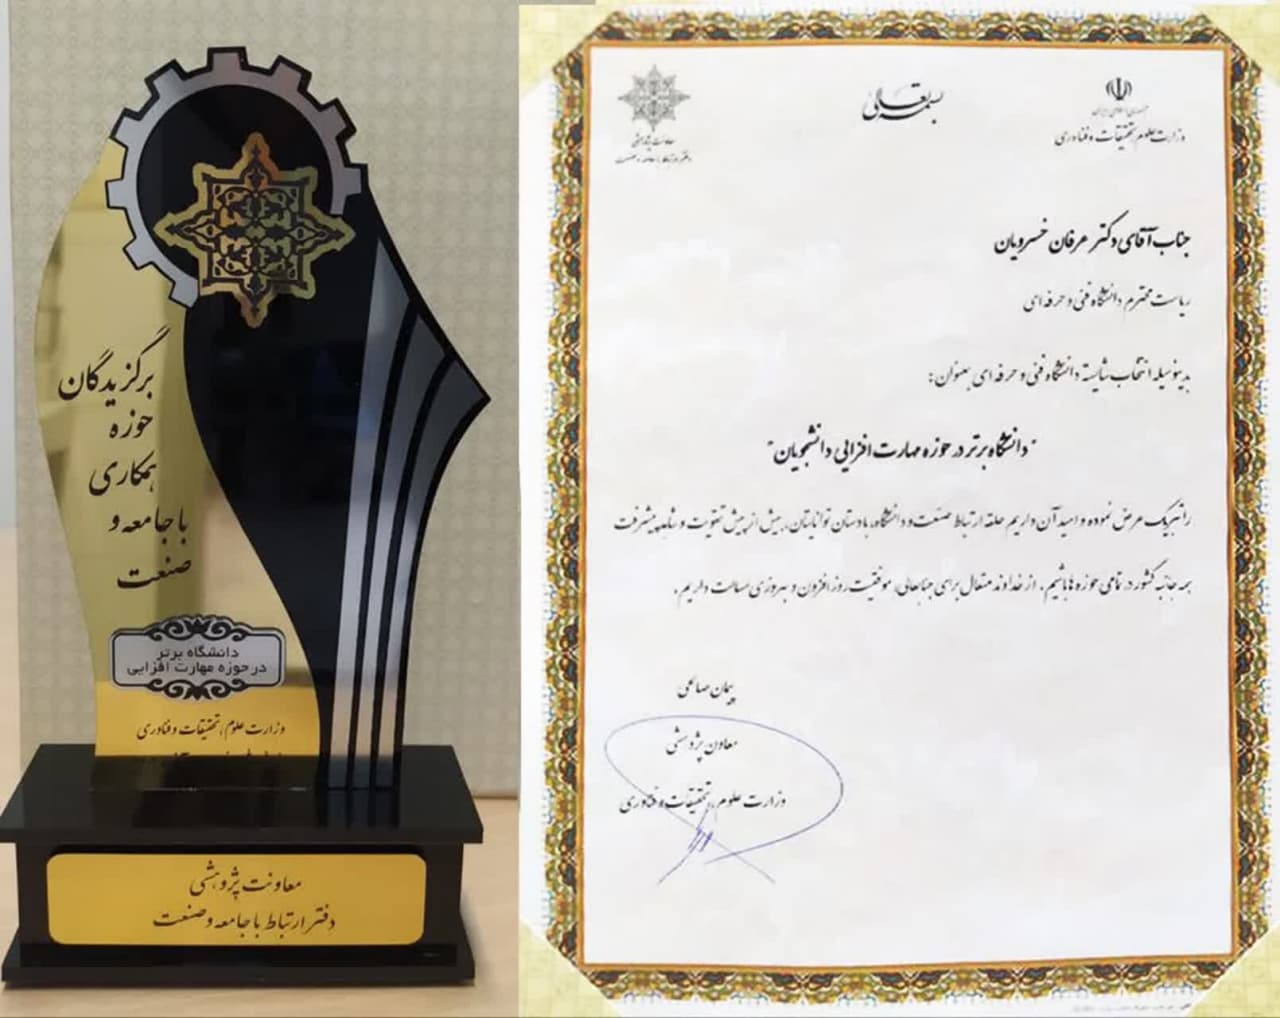 برگزیدگان
حوزه
همکاری
با جامعه و
صنعت
دانشگاه برتر
در حوزه مهارت افزایی
وزارت علوم، تحقیقات و فناوری
معاونت پژوهشی
دفتر ارتباط با جامعه و صنعت
بسمه تعالی
جمهوری اسلامی ایران
وزارت علوم تحقیقات و فناوری
معاونت پژوهشی
دفتر ارتباط با جامعه و صنعت
جناب آقای دکتر عرفان خسرویان
ریاست محترم دانشگاه فنی و حرفه ای
بدینوسیله انتخاب شایسته دانشگاه فنی و حرفه ای بعنوان:
"دانشگاه برتر در حوزه مهارت افزایی دانشجویان"
را تبریک عرض نموده و امید آن داریم حلقه ارتباط صنعت و دانشگاه، با دستان توانایتان، بیش از پیش تقویت و شاهد پیشرفت
همه جانبه کشور در تمامی حوزه ها باشیم. از خداوند متعال برای جنابعالی، موفقیت روزافزون و بهروزی مسالت داریم.
پیمان صالحی
معاون پژوهشی
وزارت علوم، تحقیقات و فناوری